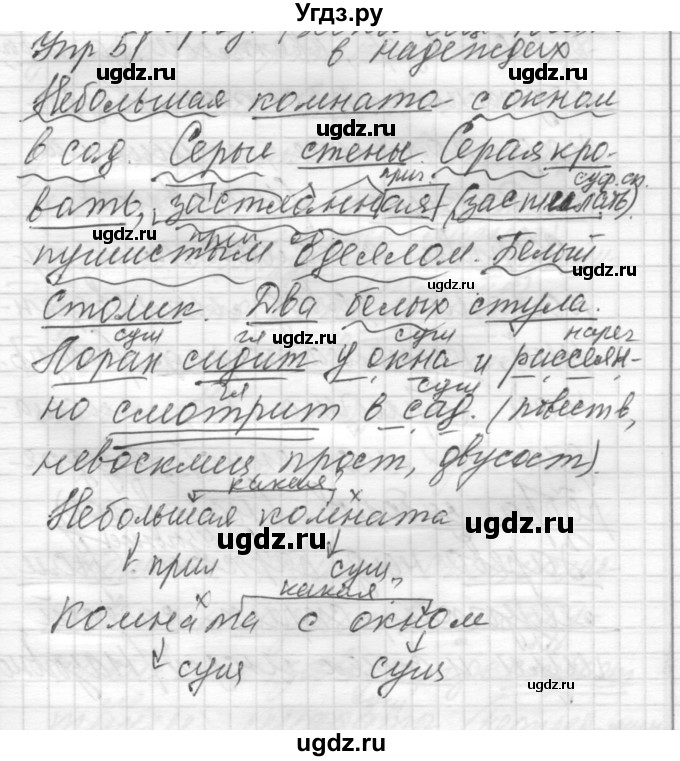 Угдз.ру
Упр 5
в надеждах
ugdz.ru
Небольшая комната с окном
ugdz.ru
в сад. Серые стены. Серая кро-
прич суф. ск.
вать, застланная (застилать)
ugdz.ru
прил
пушистым одеялом. Белый
ugdz.ru ugdz.ru
столик. Два белых стула.
сущ гл ugdz.ru сущ нареч
Лоран сидит у окна и рассеян-
гл сущ
но смотрит в сад. (повеств,
невосклиц прост, двусост)
какая?
Небольшая комната
ugdz.ru ugdz.ru
прил сущ
какая?
комната с окном
сущ сущ
ugdz.ru
ugdz.ru